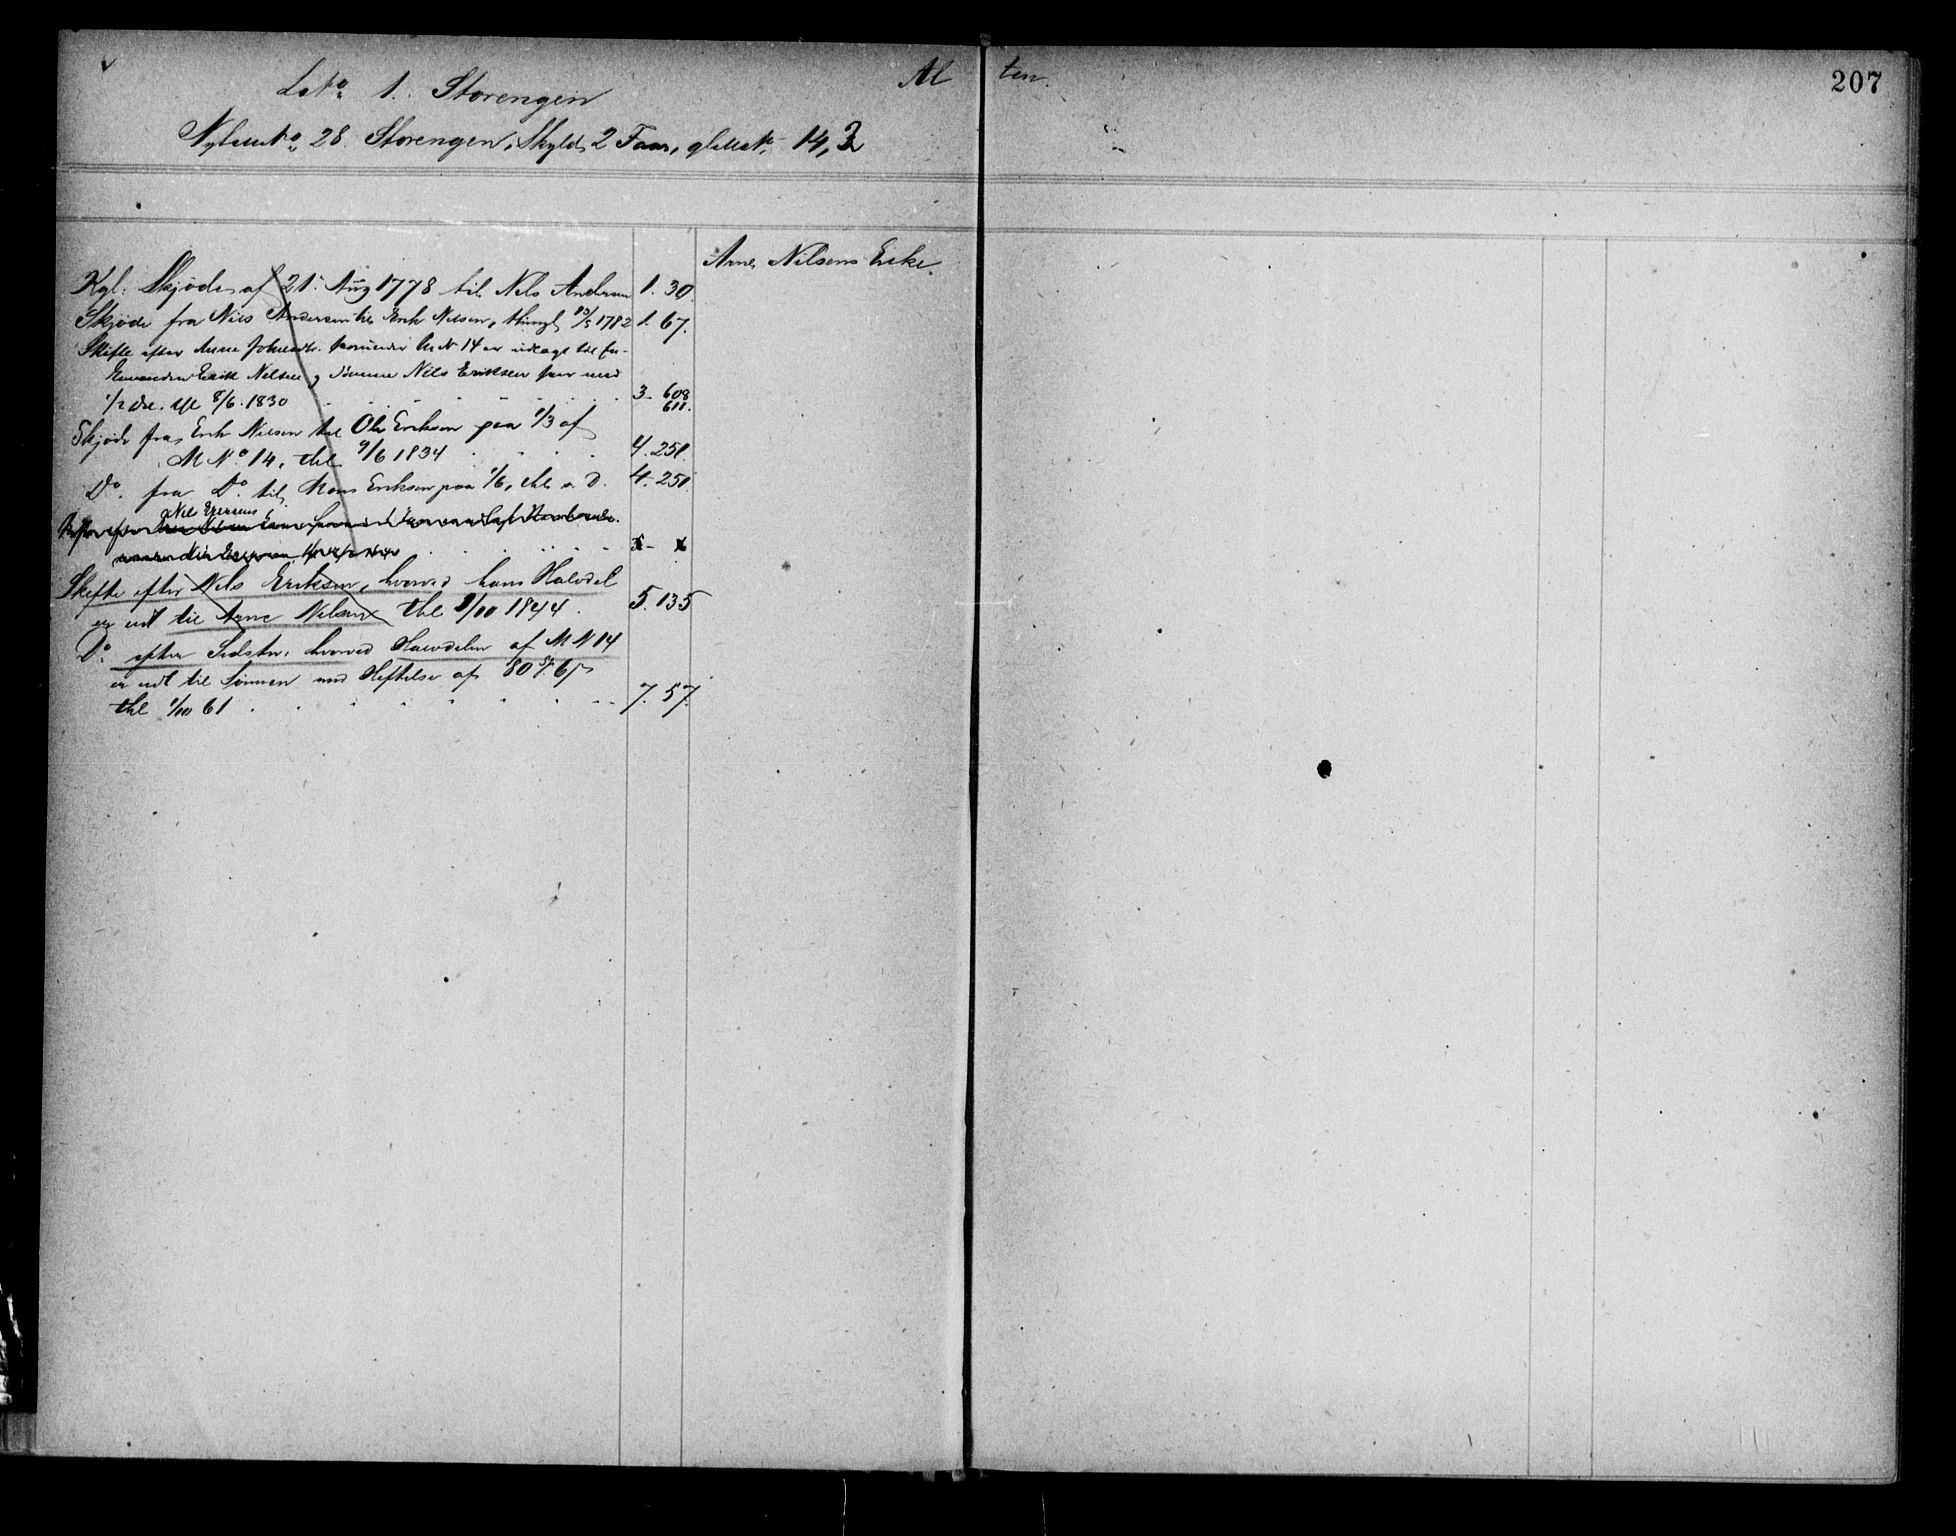 Al ten.
207
LNo 1. Storengen
Nyt No 28 Storengen, Skyld 2 Faar, gl No 14,2
Arne Nilsens Enke.
Kgl: Skjøde af 21 Aug 1778 til Nils Andersen 1. 30.
Skjøde fra Nils Andersen til Erik Nilsen, thingl 13/5 1782 1. 67.
Skifte efter Anne M N 14 er udlagt til En-
kemanden Erik Nilsen og Sønnen Nils Eriksen hver med
1/2 Del. thl 8/6. 1830 3. 608 611.
Skjøde fra Erik Nilsen til Ole Eriksen paa 1/3 af
M No 14, thl 9/6 1834 4. 250.
Do. fra Do. til Mons Eriksen paa 1/6, thl s. D. 4. 250.
Skifte efter Nils Eriksen, hvorved hans Halvdel
er udl til Arne Nilsen thl 2/10 1844. 5. 135
Do. efter Sidstn. hvorved Halvdelen af M N 14
er udl til Sønnen med Heftelse af 80 Sp. 67 s
thl 1/10 61 7. 57.